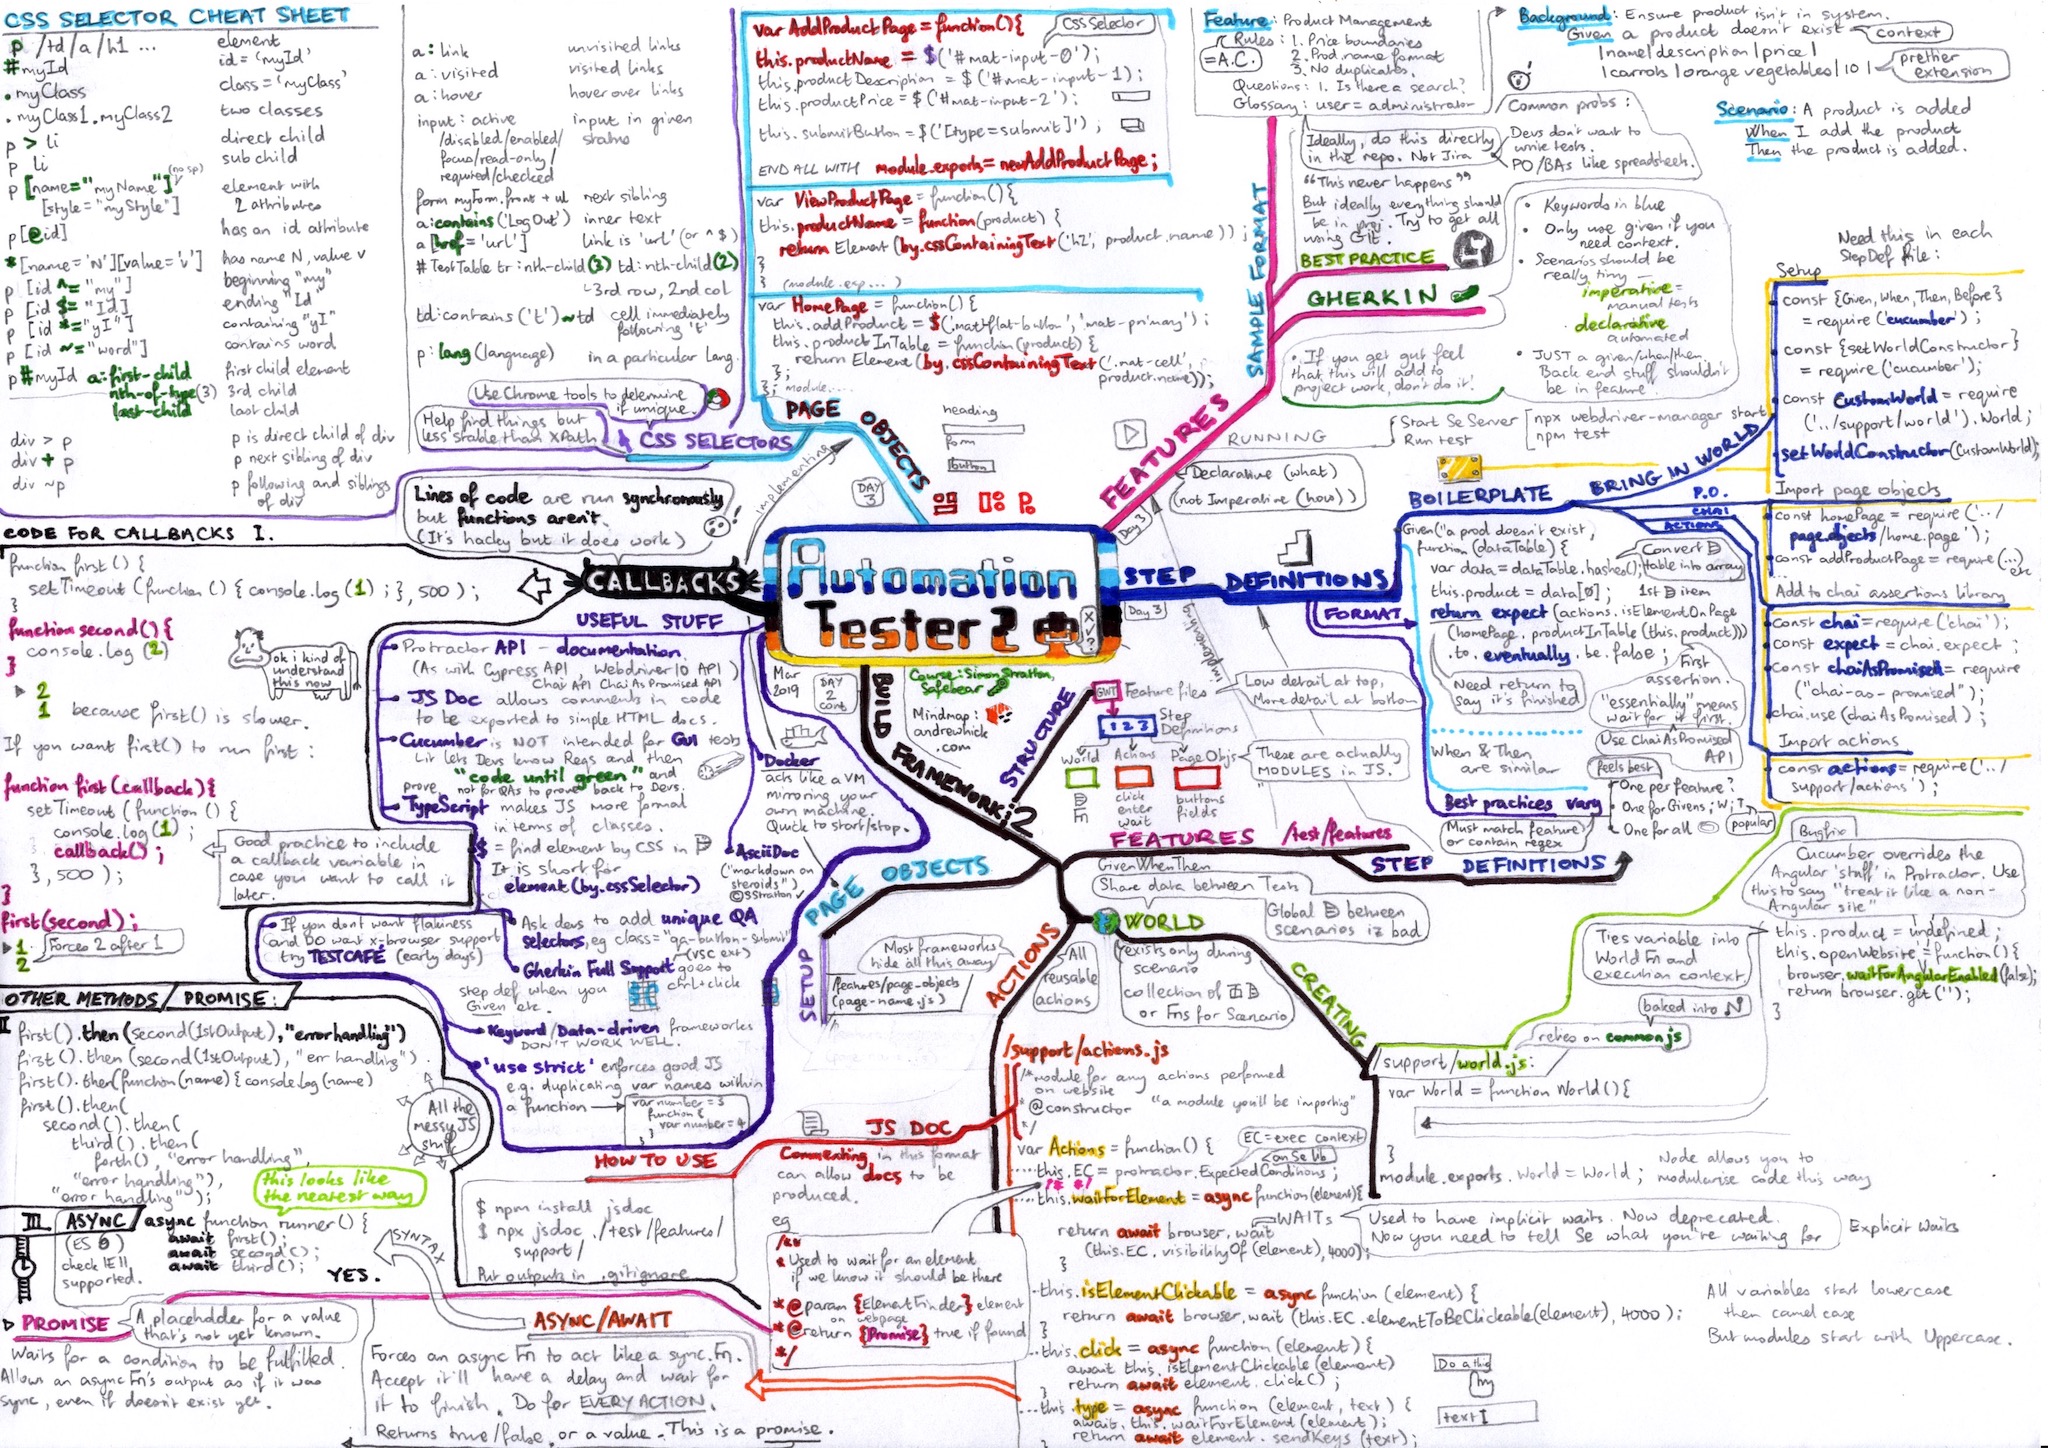 CSS SELECTOR CHEAT SHEET
p /td/a/h1 ... element
#myId id = 'myId'
.myClass class = 'myClass'
.myClass1.myClass2 two classes
p > li direct child
p li sub child
(no sp)
p [name="myName"] element with
[style="myStyle"] 2 attributes
p[@id] has an id attribute
*[name='N'][value='v'] has name N, value v
p [id ^= "my"] beginning "my"
p [id $= "Id] ending "Id
p [id *= "yI"] containing "yI"
p [id ~= "word"] contains word
p#myId a:first-child first child element
nth-of-type(3) 3rd child
last-child last child
div > p p is direct child of div
div + p p next sibling of div
div ~p p following and siblings
of div
a: link unvisited links
a:visited visited links
a:hover hover over links
input: active input in given
/disabled/enabled/ status
focus/read-only/
required/checked
form myform.front + ul next sibling
a:contains('Log Out') inner text
a [href = 'url'] link is 'url' (or ^ $)
#TestTable tr:nth-child(3) td:nth-child(2)
3rd row, 2nd col
td:contains('t')~td cell immediately
following 't'
p:lang(language) in a particular lang.
Use Chrome tools to determine
if unique.
Help find things but
less stable than XPath
CSS SELECTORS
var AddProductPage = function(){
CSS Selector
this.productName = $('#mat-input-0');
this.productDescription = $('#mat-input-1);
this.productPrice = $('#mat-input-2');
this.submitButton = $('[type=submit]');
END ALL WITH module.exports = new AddProductPage;
var ViewProductPage = function(){
this.productName = function(product) {
return Element(by.cssContainingText('h2', product.name));
}
} (module.exp...)
var HomePage = function() {
this.addProduct = $('.mat-flat-button', 'mat-primary');
this.productInTable = function(product) {
return Element(by.cssContainingText('.mat-cell',
product.name));
};
}; module....
PAGE OBJECTS
heading
form
button
DAY
3
implementing
Feature: Product Management
Rules: 1. Price boundaries
= A.C. 2. Prod name format
3. No duplicates.
Questions: 1. Is there a search?
Glossary: user = administrator
Background: Ensure product isn't in system.
Given a product doesn't exist
context
|name|description|price|
|carrots|orange vegetables|10|
extension
Scenario: A product is added
When I add the product
Then the product is added.
Common probs:
Devs don't want to
write tests.
PO/BAs like spreadsheets.
Ideally, do this directly
in the repo. Not Jira
"This never happens"
But ideally everything should
be in proj. Try to get all
using Git.
BEST PRACTICE
GHERKIN
SAMPLE FORMAT
FEATURES
• Keywords in blue
• Only use given if you
need context.
• Scenarios should be
really tiny
imperative =
manual tests
declarative
automated
• JUST a given/when/then.
Back end stuff shouldn't
be in feature.
• If you get gut feel
that this will add to
project work, don't do it!
RUNNING
Start Se Server npx webdriver-manager start
Run test npm test
Declarative (what)
(not Imperative (how))
Day 3
Need this in each
StepDef file:
Setup
const {Given, When, Then, Before}
= require ('cucumber');
const {setWorldConstructor}
= require ('cucumber');
const CustomWorld = require
('../support/world').World;
setWorldConstructor(CustomWorld);
Import page objects
const homePage = require('../
page.objects/home.page');
const addProductPage = require(...
etc
Add to chai assertions library
const chai = require('chai');
const expect = chai.expect;
const chaiAsPromised = require
("chai-as-promised");
chai.use(chaiAsPromised);
Import actions
const actions = require('../
support/actions');
BRING IN WORLD
P.O.
CHAI
ACTIONS
BOILERPLATE
Given("a prod doesn't exist,
function (dataTable) {
var data = dataTable.hashes();
Convert
table into array
this.product = data[0]; 1st item
return expect (actions.isElementOnPage
(homePage.productInTable(this.product)))
.to.eventually.be.false;
First
assertion.
Need return to
say it's finished
"essentially" means
wait for it first.
Use ChaiAsPromised
API
When & Then
are similar
feels best
Best practices vary
One per feature?
One for Givens; W; T
popular
One for all
Must match feature
or contain regex
STEP DEFINITIONS
FORMAT
Day 3
implementing
Automation
Tester 2
Mar
2019
DAY
2
cont
Course: Simon Stratton,
Safebear
Mindmap:
andrewhick
.com
Lines of code are run synchronously
but functions aren't.
(It's hacky but it does work)
CALLBACKS
CODE FOR CALLBACKS I.
function first() {
setTimeout (function () { console.log(1); }, 500);
}
function second() {
console.log(2)
}
2
1 because first() is slower.
If you want first() to run first:
function first(callback){
setTimeout (function () {
console.log(1);
callback();
}, 500);
}
first(second);
1
2
Forces 2 after 1
ok i kind of
understand
this now
Good practice to include
a callback variable in
case you want to call it
later.
USEFUL STUFF
Protractor API - documentation
(As with Cypress API, Webdriver IO API)
Chai API Chai As Promised API
JS Doc allows comments in code
to be exported to simple HTML docs.
Cucumber is NOT intended for GUI tests
It lets Devs know Reqs and then
"code until green" and
prove not for QAs to prove back to Devs.
TypeScript makes JS more formal
in terms of classes.
$ = find element by CSS in
It is short for
element(by.cssSelector)
Ask devs to add unique QA
selectors, eg class="qa-button-submit"
(VSC ext)
Gherkin Full Support goes to
step def when you ctrl+click
Given etc.
If you don't want flakiness
and DO want x-browser support
try TESTCAFÉ (early days)
Keyword/Data-driven frameworks
DON'T WORK WELL.
'use strict' enforces good JS
e.g. duplicating var names within
a function
var number = 3
function {
var number = 4
}
Docker
acts like a VM
mirroring your
own machine.
Quick to start/stop.
AsciiDoc
('markdown on
steroids')
©SStratton
BUILD FRAMEWORK:2
STRUCTURE
GWT Feature files
Low detail at top,
More detail at bottom
123 Step
Definitions
World Actions Page Objs
click
enter
wait
buttons
fields
Fn
These are actually
MODULES in JS.
FEATURES /test/features
STEP DEFINITIONS
GivenWhenThen
PAGE OBJECTS
SETUP
Most frameworks
hide all this away
/features/page-objects
(page-name.js)
WORLD
Share data between Tests
Global between
scenarios is bad
exists only during
scenario
collection of
or Fns for Scenario
ACTIONS
All
reusable
actions
CREATING
/support/world.js:
relies on common js
baked into N
var World = function World(){
}
module.exports.World = World; Node allows you to
modularise code this way
Bugfix
Cucumber overrides the
Angular 'stuff' in Protractor. Use
this to say "treat it like a non-
Angular site"
Ties variable into
World Fn and
execution context
this.product = undefined;
this.openWebsite = function(){
browser.waitForAngularEnabled(false);
return browser.get('');
}
OTHER METHODS/PROMISE:
II
first().then(second(1stOutput), "error handling")
first().then(second(1stOutput), "err handling")
first().then(function(name){console.log(name)
first().then(
second().then(
third().then(
forth(), "error handling",
"error handling"),
"error handling");
All the
messy JS
stuff
this looks like
the nearest way
III
ASYNC/
(ES6)
check IE11
supported.
async function runner() {
await first();
await second();
await third();
YES.
SYNTAX
PROMISE
A placeholder for a value
that's not yet known.
Waits for a condition to be fulfilled.
Allows an async Fn's output as if it was
sync, even if doesn't exist yet.
ASYNC/AWAIT
Forces an async Fn to act like a sync. Fn.
Accept it'll have a delay and wait for
it to finish. Do for EVERY ACTION.
Returns true/false, or a value. This is a promise.
HOW TO USE
$ npm install jsdoc
$ npx jsdoc ./test/features/
support/
Put outputs in .gitignore
JS DOC
Commenting in this format
can allow docs to be
produced.
eg
/**
* Used to wait for an element
if we know it should be there
* @param {ElementFinder} element
on webpage
* @return {Promise} true if found
*/
/support/actions.js
/* module for any actions performed
on website
* @constructor "a module you'll be importing"
*/
var Actions = function() {
EC = exec context
on Se lib
this.EC = protractor.ExpectedConditions;
/* */
this.waitForElement = async function(element){
return await browser.wait
(this.EC.visibilityOf(element), 4000);
}
WAITs
Used to have implicit waits. Now deprecated.
Now you need to tell Se what you're waiting for
Explicit Waits
this.isElementClickable = async function (element) {
return await browser.wait (this.EC.elementToBeClickable(element), 4000);
}
this.click = async function (element) {
await this.isElementClickable (element)
return await element.click();
}
this.type = async function (element, text) {
await.this.waitForElement(element);
return await element.sendKeys (text);
}
Do a this
text
All variables start lowercase
then camel case
But modules start with Uppercase.